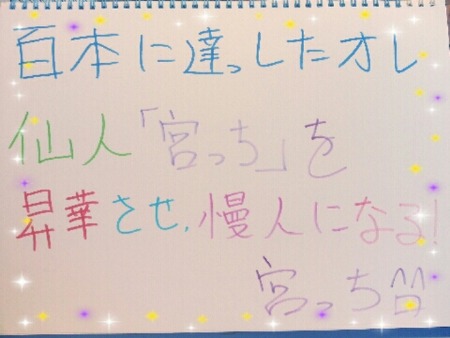 百本に達っしたオレ
仙人「宮っち」を
昇華させ、慢人になる!
宮っち